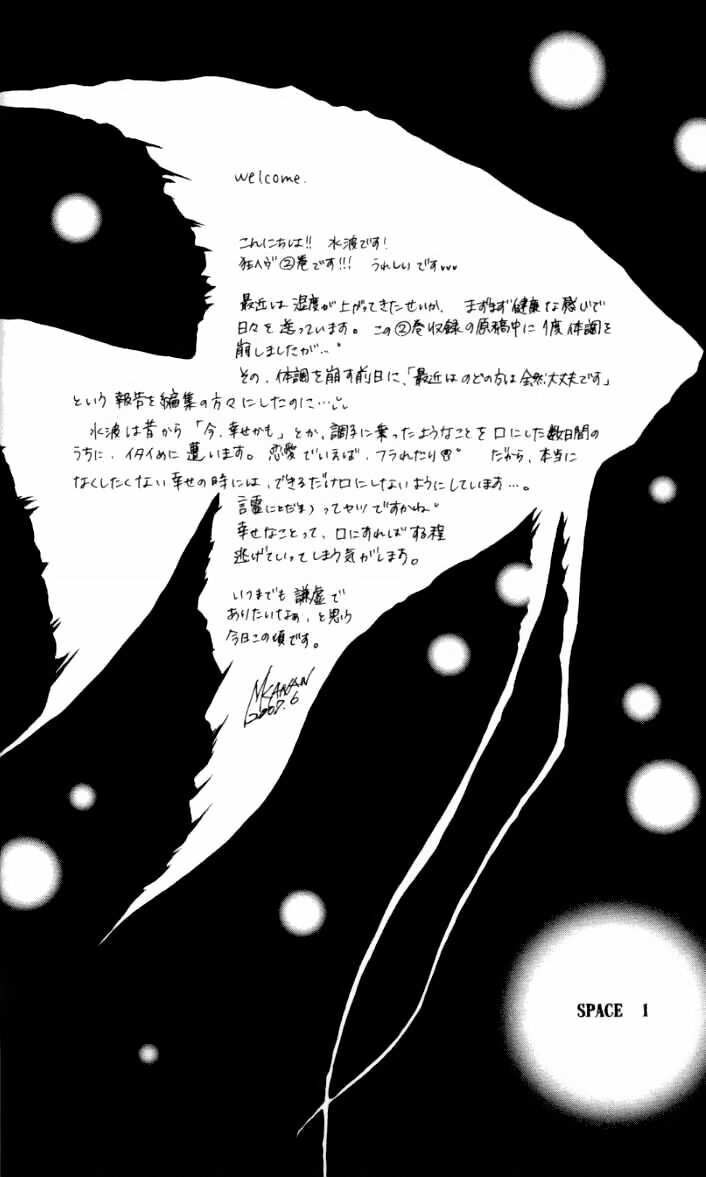 welcome.
こんにちは!! 水波です!
狂ヘヴ②巻です!!! うれしいです
最近は湿度が上がってきたせいか、ますます健康な感じで
日々を送っています。この②巻収録の原稿中に1度体調を
崩しましたが…。
その、体調を崩す前日に、「最近はのどの方は全然大丈夫です」
という報告を編集の方々にしたのに…
水波は昔から「今、幸せかも」とか、調子に乗ったようなことを口にした数日間の
うちに、イタイめに遭います。恋愛でいえば、フラれたり だから、本当に
なくしたくない幸せの時には、できるだけ口にしないようにしています…。
言霊(ことだま)ってヤツですかね。
幸せなことって、口にすればする程
逃げていってしまう気がします。
いつまでも謙虚で
ありたいなぁ、と思う
今日この頃です。
M KANAN
SPACE 1